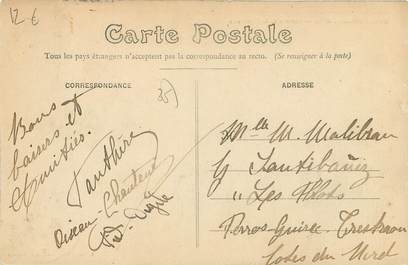 12 €
Carte Postale
Tous les pays étrangers n'acceptent pas la correspondance au recto. (Se renseigner à la poste)
CORRESPONDANCE
ADRESSE
35)
Bons
baisers et
Amitiés.
Panthère
Oiseau-Chanteur
Mlle M. Malibran
y Santibáñiz
"Les Flots"
Perros-Guirec-Trestraou
Cotes du Nord